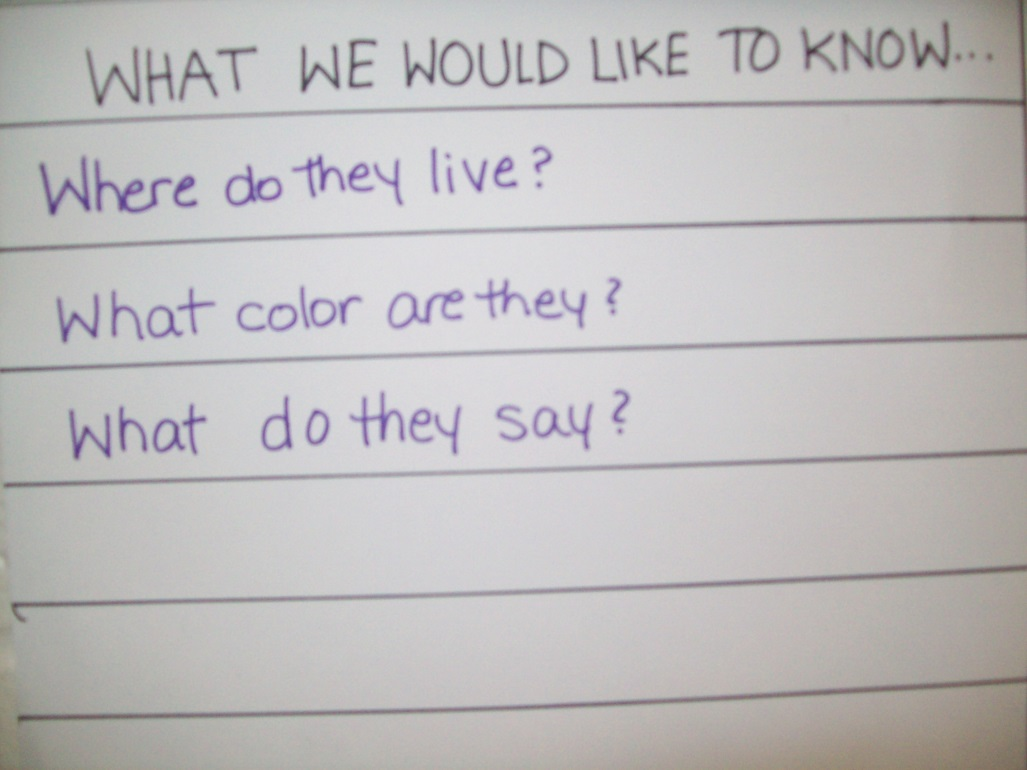 WHAT WE WOULD LIKE TO KNOW...
Where do they live?
What color are they?
What do they say?